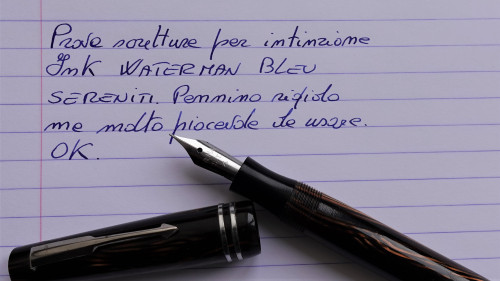 Prova scrittura per intinzione
Ink WATERMAN BLEU
SERENITI. Pennino rigido
ma molto piacevole da usare.
OK.